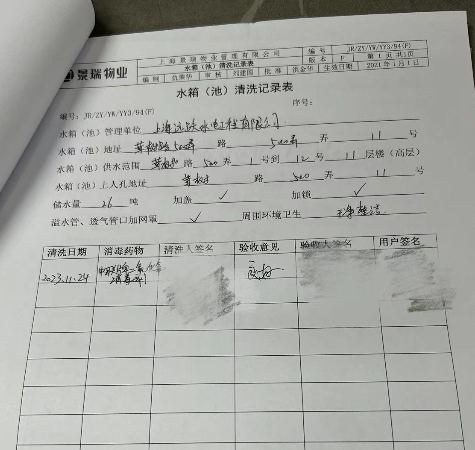 景瑞物业
上海景瑞物业管理有限公司 编号 JR/ZY/YW/YY3/94(F)
水箱（池）清洗记录表 版本 F 第1页共1页
编制 审核 刘建国 批准 洪金华 生效日期 2021年1月1日
水箱（池）清洗记录表
编号：JR/ZY/YW/YY3/94(F) 序号：
水箱（池）管理单位 上海 水电工程有限公司
水箱（池）地址 路 500弄 弄 11 号
水箱（池）供水范围 路 500 弄 1 号到 12 号 11 层楼（高层）
水箱（池）上人孔地址 路 500 弄 11 号
储水量 26 吨 加盖 ✓ 加锁 ✓
溢水管、透气管口加网罩 ✓ 周围环境卫生 整洁
清洗日期 消毒药物 清洗人签名 验收意见 验收人签名 用户签名
2023.11.24 消毒剂 良好